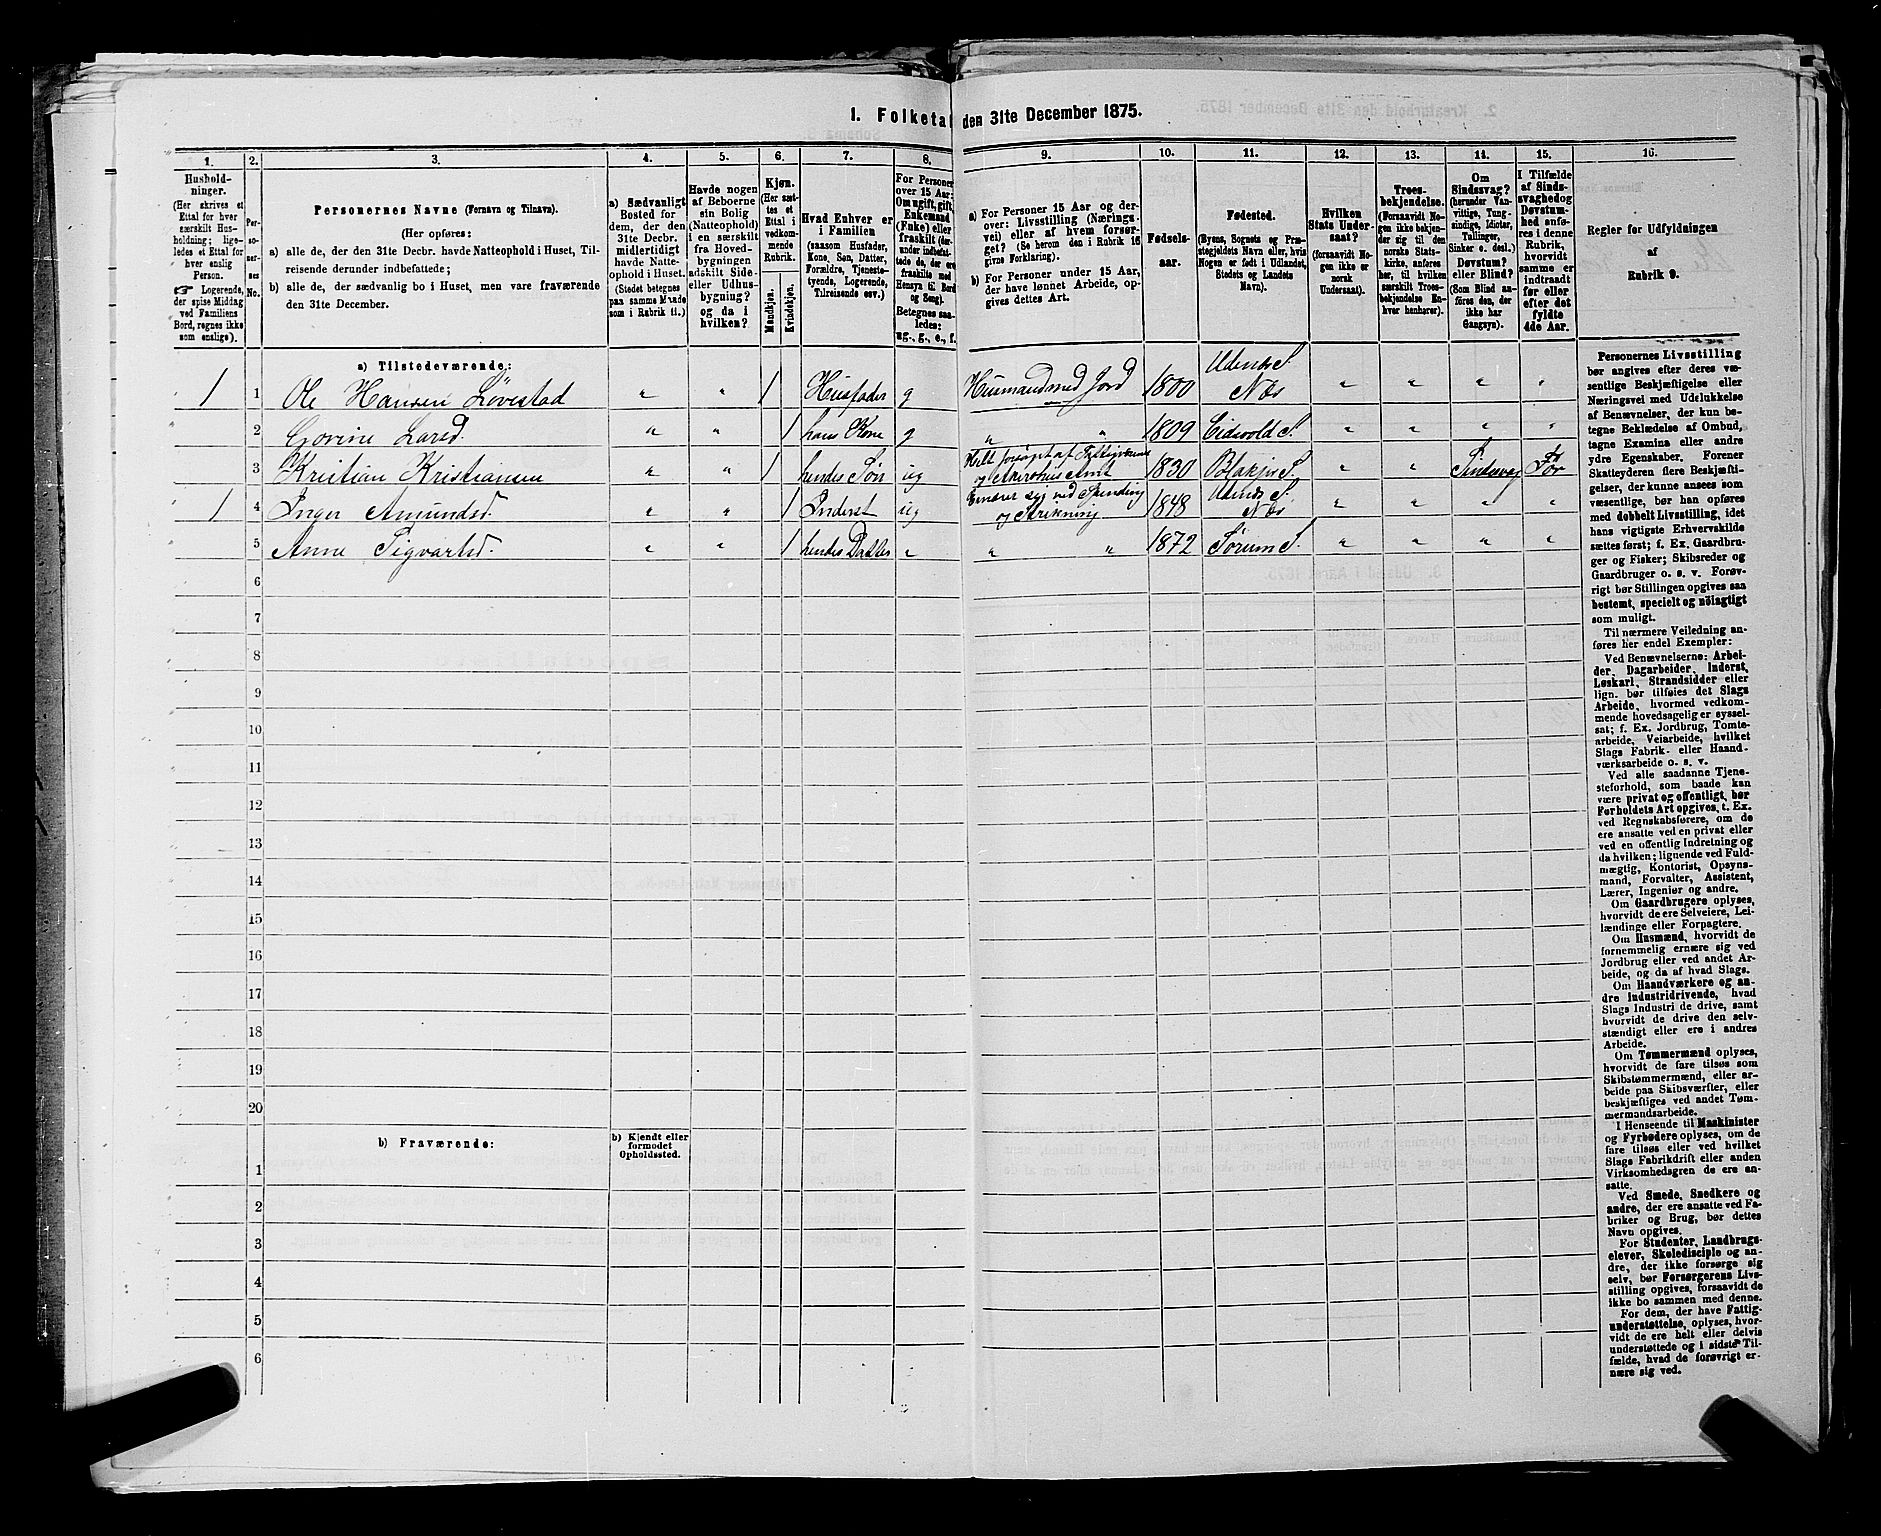 1. Folketal den 31te December 1875.
1. 2. 3. 4. 5. 6. 7. 8. 9. 10. 11. 12. 13. 14. 15. 16.
Husholdninger.
(Her skrives et
Ettal for hver
særskilt Husholdning;
ligeledes et Ettal for
hver enslig
Person.
☞ Logerende,
der spise Middag
ved Familiens
Bord, regnes ikke
som enslige).
Personernes No.
Personernes Navne (Fornavn og Tilnavn).
(Her opføres:
a) alle de, der den 31te Decbr. havde Natteophold i Huset, Tilreisende derunder indbefattede;
b) alle de, der sædvanlig bo i Huset, men vare fraværende
den 31te December.
a) Sædvanligt
Bosted for
dem, der den
31te Decbr.
midlertidigt
havde Natteophold i Huset.
(Stedet betegnes
paa samme Maade
som i Rubrik 11.)
Havde nogen
af Beboerne
sin Bolig
(Natteophold)
i en særskilt
fra Hovedbygningen
adskilt Side-
eller Udhusbygning?
og da i
hvilken?
Kjøn.
(Her sættes et
Ettal i
vedkommende
Rubrik.
Mandkjøn.
Kvindekjøn.
Hvad Enhver er
i Familien
(saasom Husfader,
Kone, Søn, Datter,
Forældre, Tjenestetyende, Logerende,
Tilreisende osv.)
For Personer
over 15 Aar:
Om ugift, gift,
Enkemand
(Enke) eller
fraskilt (derunder indbefattede de, der ere
fraskilte med
Hensyn til Bord
og Seng).
Betegnes saaledes:
ug., g., e., f.
a) For Personer 15 Aar og derover: Livsstilling (Næringsvei) eller af hvem forsørget? (Se herom den i Rubrik 16
givne Forklaring).
b) For Personer under 15 Aar,
der have lønnet Arbeide, opgives dettes Art.
Fødselsaar.
Fødested.
(Byens, Sognets og Præstegjeldets Navn eller, hvis
Nogen er født i Udlandet,
Stedets og Landets
Navn).
Hvilken
Stats Undersaat?
(forsaavidt Nogen ikke er
norsk
Undersaat).
Troesbekjendelse.
(Forsaavidt Nogen ikke bekjender sig til den
norske Statskirke, anføres
her, til hvilken
særskilt Troesbekjendelse Enhver henhører).
Om
Sindssvag?
(herunder Vanvittige, Tungsindige, Idioter,
Tullinger,
Sinker o. desl.)
Døvstum?
eller Blind?
(Som Blind anføres den, der
ikke har
Gangsyn).
I Tilfælde
af Sindssvaghed og
Døvstumhed anføres i denne
Rubrik,
hvorvidt
samme er
indtraadt
før eller
efter det
fyldte
4de Aar.
Regler for Udfyldningen
af
Rubrik 9.
a) Tilstedeværende:
1 1 Ole Hansen Løvestad " " 1 Husfader g Husmand med Jord 1800 Udenes S. Næs " " " "
2 Govine Larsd. " " 1 hans Kone g " " 1809 Eidsvold S. " " " "
3 Kristian Kristiansen " " 1 hendes Søn ug Helt forsørget af og Akershus Amt 1830 Blakjer S. " " Sindsvag Før
1 4 Inger Amundsd. " " 1 Inderst ug Ernærer sig ved Spinding og Strikning 1848 Udenes S. Næs " " " "
5 Anne Sigvartsd. " " 1 hendes Datter " " " 1872 Sørum S. " " " "
6
7
8
9
10
11
12
13
14
15
16
17
18
19
20
b) Fraværende:
b) Kjendt eller
formodet
Opholdssted.
1
2
3
4
5
6
Personernes Livsstilling
bør angives efter deres væsentlige Beskjæftigelse eller
Næringsvei med Udelukkelse
af Benævnelser, der kun betegne Beklædelse af Ombud,
tagne Examina eller andre
ydre Egenskaber. Forener
Skatteyderen flere Beskjæftigelser, der kunne ansees som
væsentlige, bør han opføres
med dobbelt Livsstilling, idet
hans vigtigste Erhvervskilde
sættes først; f. Ex. Gaardbruger og Fisker; Skibsreder og
Gaardbruger o. s. v. Forøvrigt bør Stillingen opgives saa
bestemt, specielt og nöiagtigt
som muligt.
Til nærmere Veiledning anføres her endel Exempler:
Ved Benævnelserne: Arbeider, Dagarbeider, Inderst,
Løskarl, Strandsidder eller
lign. bør tilføies det Slags
Arbeide, hvormed vedkommende hovedsagelig er sysselsat; f. Ex. Jordbrug, Tomtearbeide, Veiarbeide, hvilket
Slags Fabrik- eller Haandværksarbeide o. s. v.
Ved alle saadanne Tjenesteforhold, som baade kan
være privat og offentligt, bør
Forholdets Art opgives, t. Ex.
ved Regnskabsførere, om de
ere ansatte ved en privat eller
ved en offentlig Indretning og
da hvilken; lignende ved Fuldmægtig, Kontorist, Opsynsmand, Forvalter, Assistent,
Lærer, Ingeniør og andre.
Om Gaardbrugere oplyses,
hvorvidt de ere Selveiere, Leilændinge eller Forpagtere.
Om Husmænd, hvorvidt de
fornemmelig ernære sig ved
Jordbrug eller ved andet Arbeide, og da af hvad Slags.
Om Haandværkere og andre Industridrivende, hvad
Slags Industri de drive, samt
hvorvidt de drive den selvstændigt eller ere i andres
Arbeide.
Om Tømmermænd oplyses,
hvorvidt de fare tilsøs som
Skibstømmermænd, eller arbeide paa Skibsværfter, eller
beskjæftiges ved andet Tømmermandsarbeide.
I Henseende til Maskinister
og Fyrbødere oplyses, om de
fare tilsøs eller ved hvilket
Slags Fabrikdrift eller anden
Virksomhedsgren de ere ansatte.
Ved Smede, Snedkere og
andre, der ere ansatte ved Fabriker og Brug, bør dettes
Navn opgives.
For Studenter, Landbrugselever, Skoledisciple og andre, der ikke forsørge sig
selv, bør Forsørgerens Livsstilling opgives, forsaavidt de
ikke bo sammen med denne.
For dem, der have Fattigunderstøttelse, oplyses, hvorvidt de ere helt eller delvis
understøttede og i sidste Tilfælde, hvad de forøvrigt ernære sig ved.